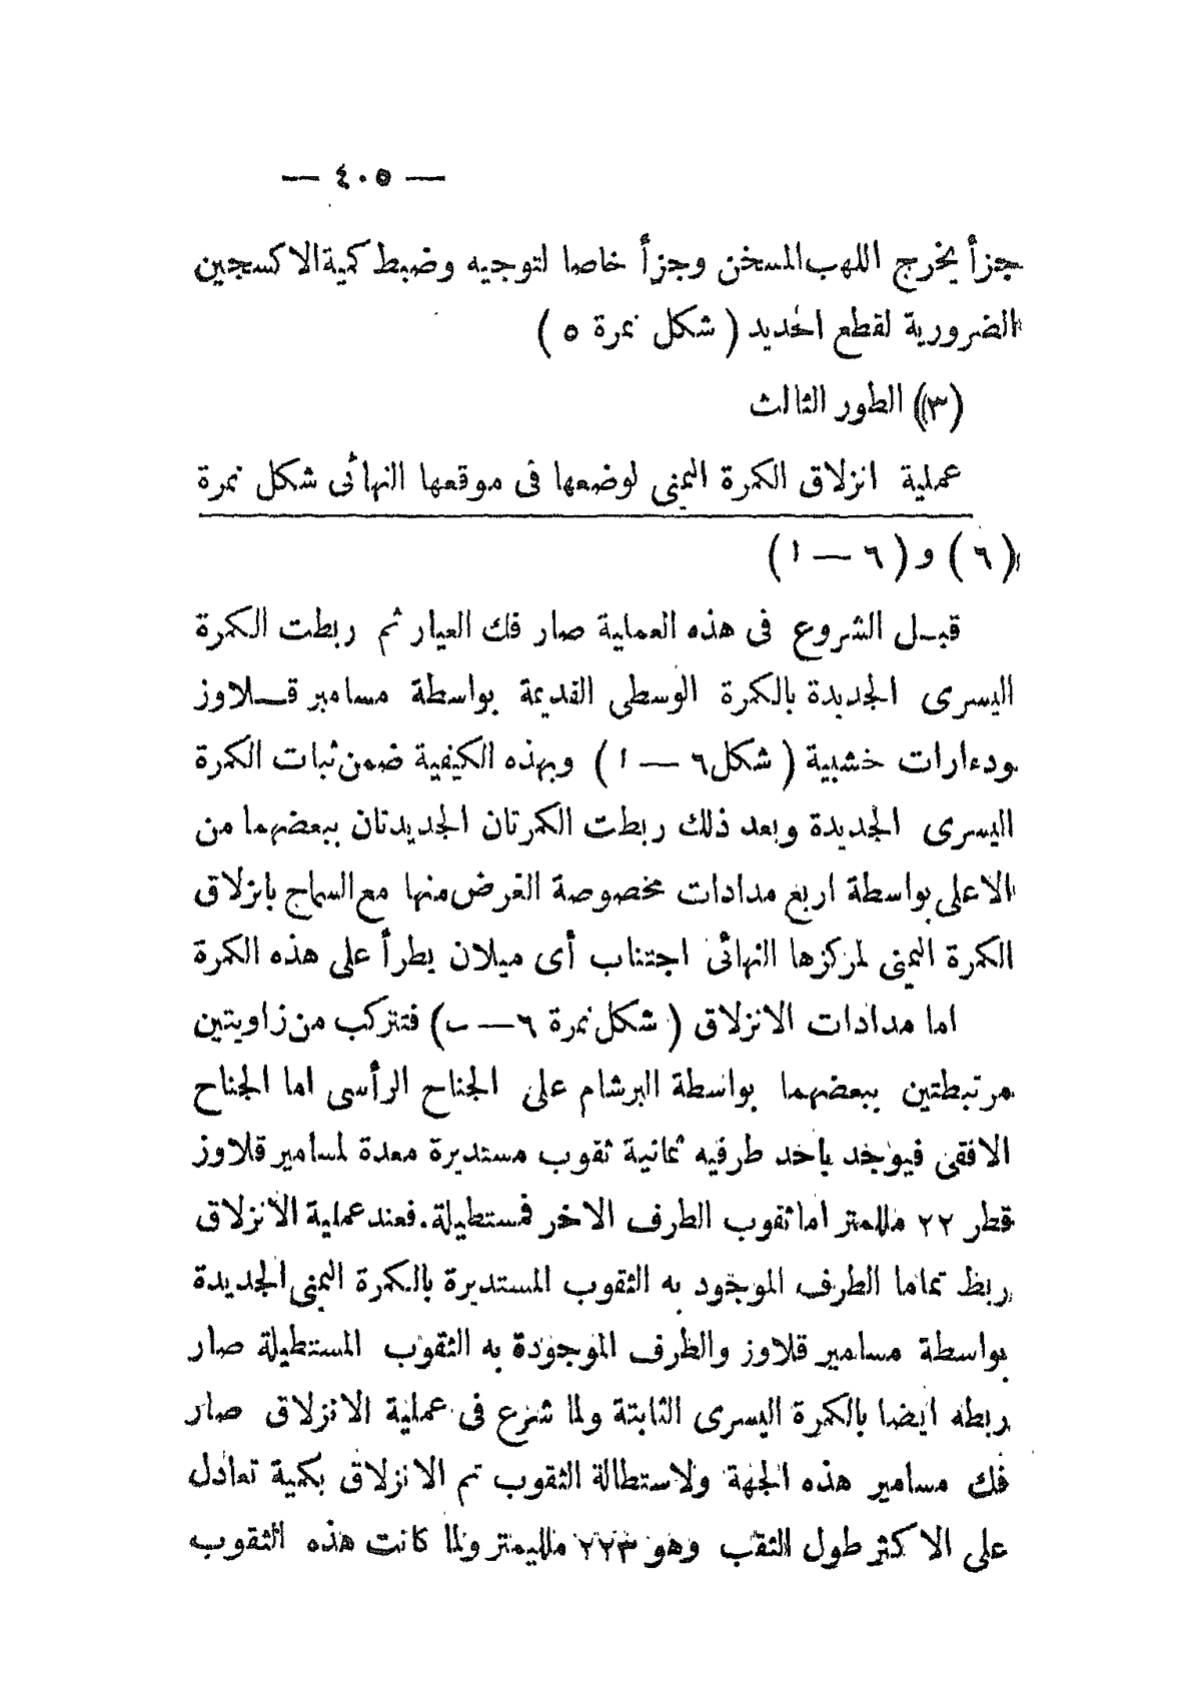 — ٤٠٥ —
جزأ يخرج اللهب المسخن وجزأ خاصا لتوجيه وضبط كمية الاكسجين
الضرورية لقطع الحديد ( شكل نمرة ٥ )
(٣) الطور الثالث
عملية انزلاق الكمرة اليمنى لوضعها فى موقعها النهائى شكل نمرة
(٦) و (٦ — ١)
قبل الشروع فى هذه العملية صار فك العيار ثم ربطت الكمرة
اليسرى الجديدة بالكمرة الوسطى القديمة بواسطة مسامير قلاوز
ودعارات خشبية ( شكل ٦ — ١ ) وبهذه الكيفية ضمن ثبات الكمرة
اليسرى الجديدة وبعد ذلك ربطت الكمرتان الجديدتان ببعضهما من
الاعلى بواسطة اربع مدادات مخصوصة الغرض منها مع السماح بانزلاق
الكمرة اليمنى لمركزها النهائى اجتناب أى ميلان يطرأ على هذه الكمرة
اما مدادات الانزلاق ( شكل نمرة ٦ — ب ) فتتركب من زاويتين
مرتبطتين ببعضهما بواسطة البرشام على الجناح الرأسى اما الجناح
الافقى فيوجد باحد طرفيه ثمانية ثقوب مستديرة معدة لمسامير قلاوز
قطر ٢٢ مللمتر اما ثقوب الطرف الاخر فمستطيلة. فعند عملية الانزلاق
ربط تماما الطرف الموجود به الثقوب المستديرة بالكمرة اليمنى الجديدة
بواسطة مسامير قلاوز والطرف الموجودة به الثقوب المستطيلة صار
ربطه ايضا بالكمرة اليسرى الثابتة ولما شرع فى عملية الانزلاق صار
فك مسامير هذه الجهة ولاستطالة الثقوب تم الانزلاق بكمية تعادل
على الاكثر طول الثقب وهو ٢٢٣ ملليمتر ولما كانت هذه الثقوب